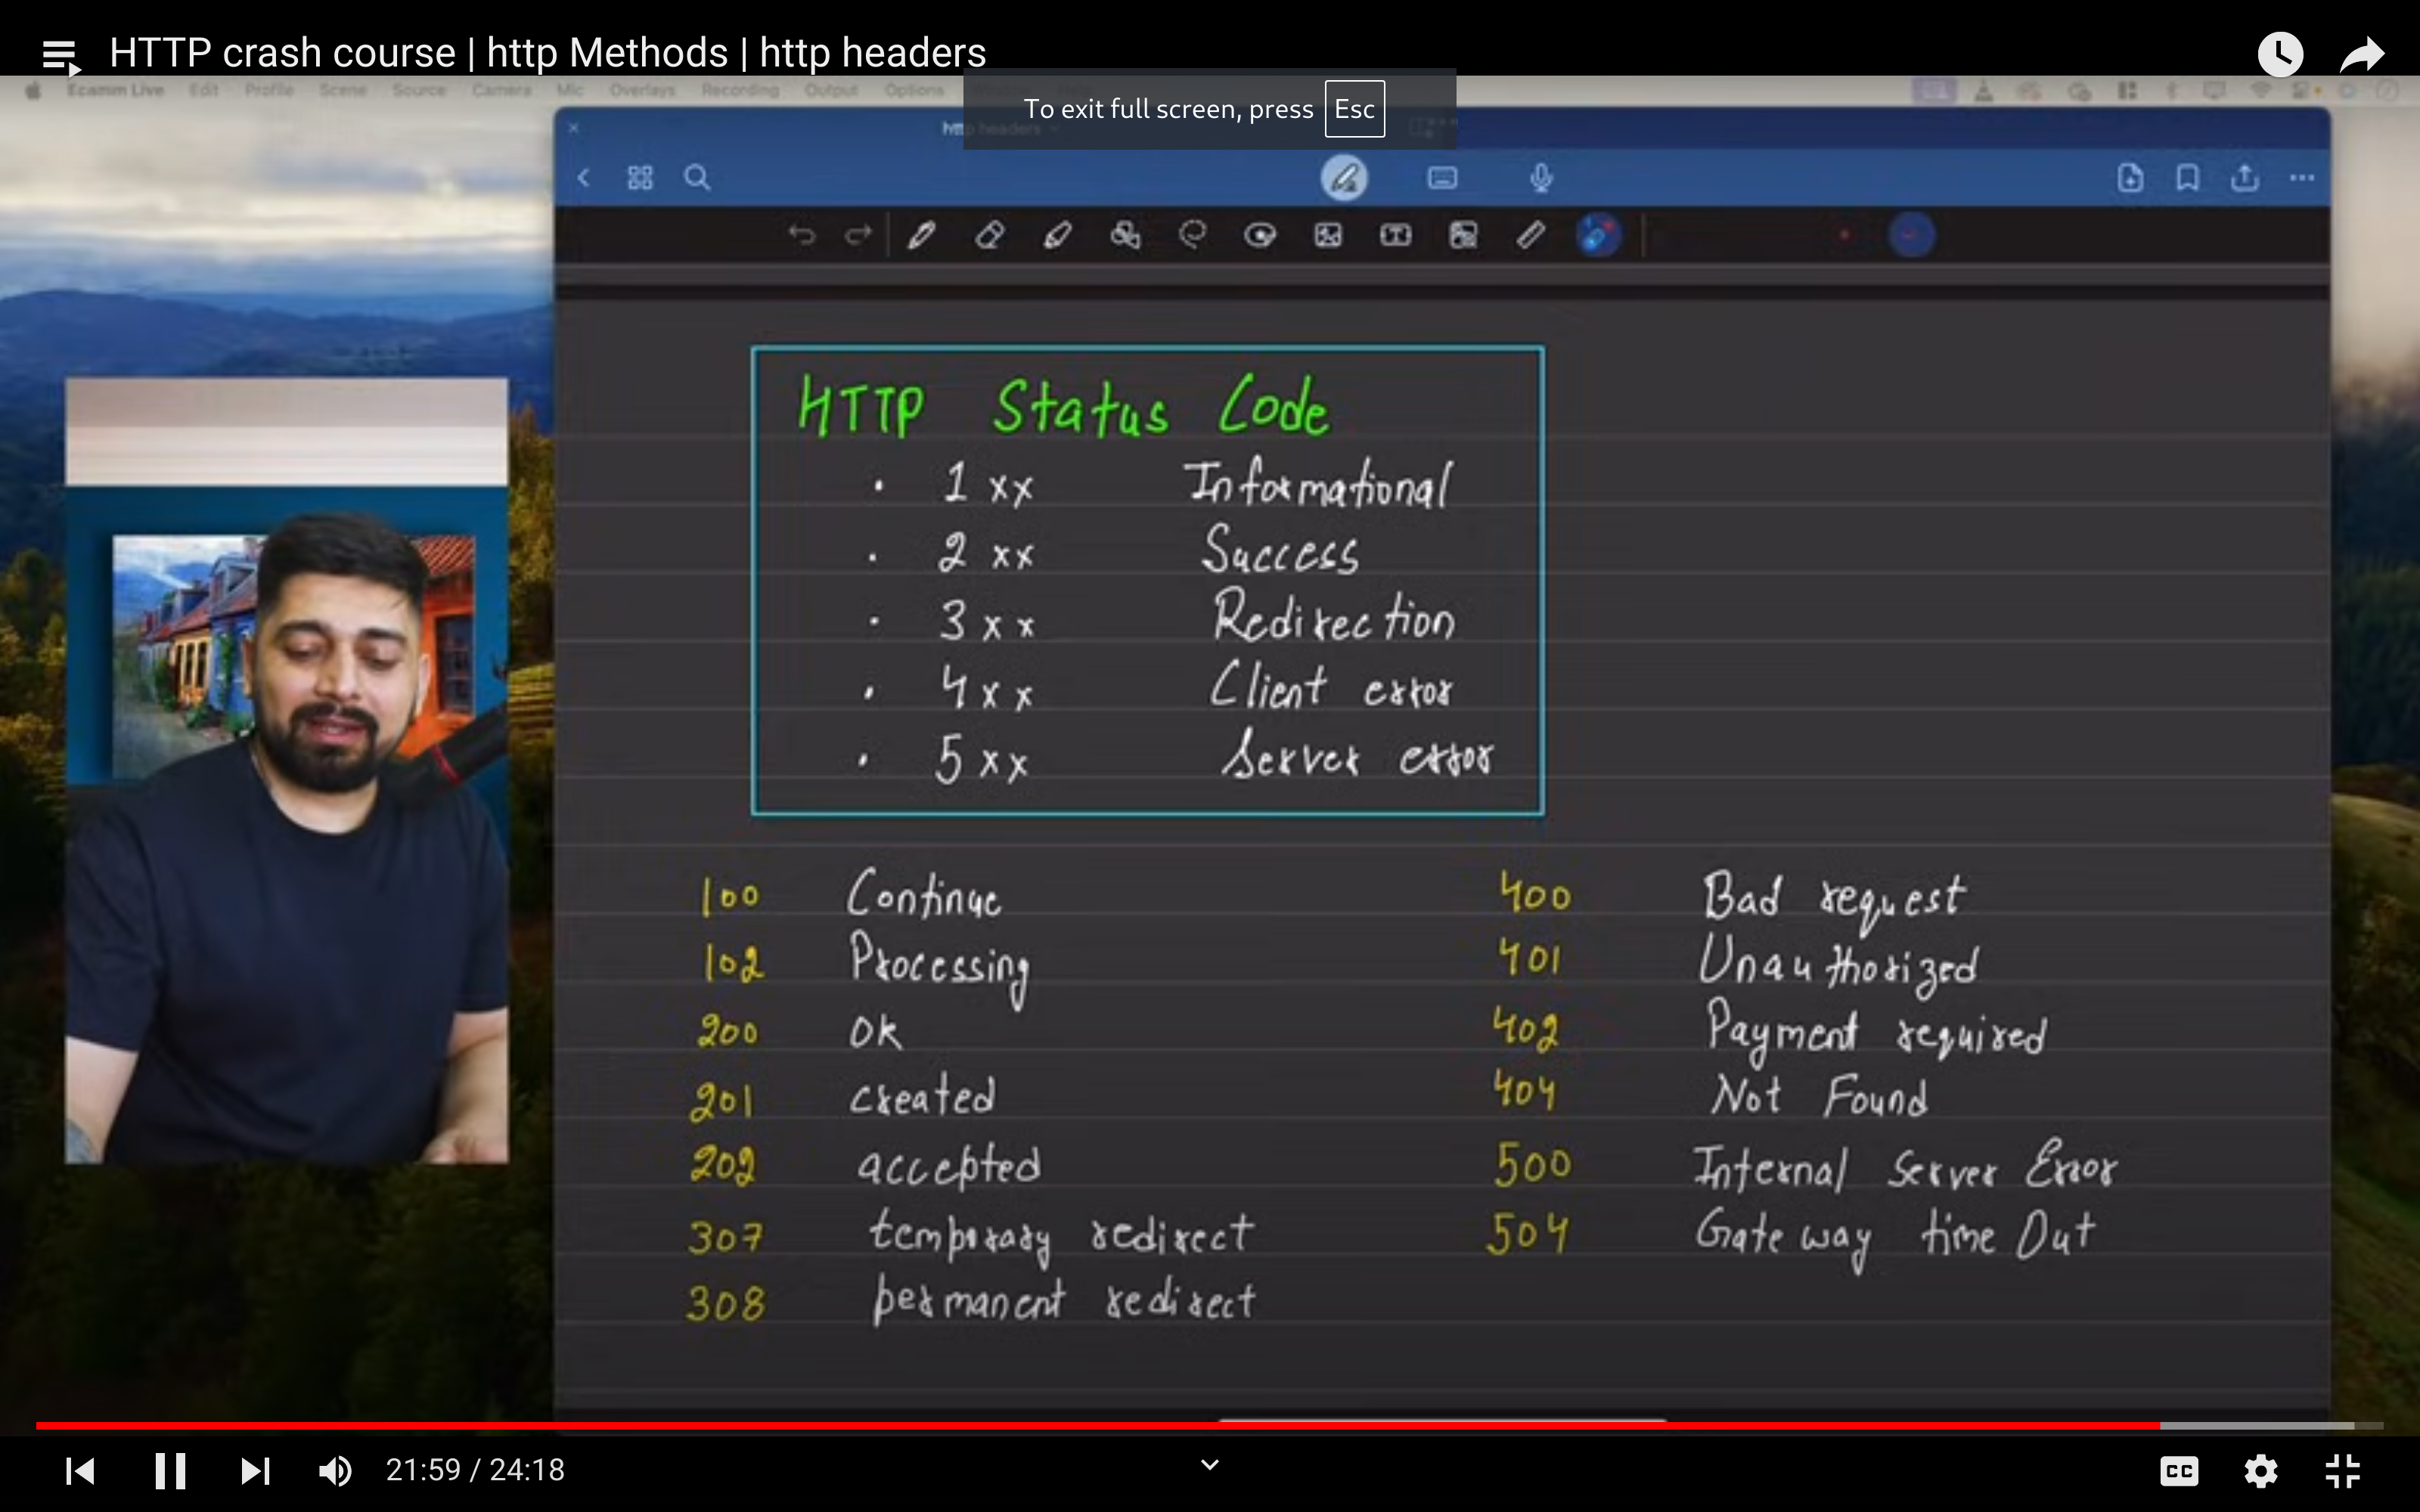 HTTP crash course | http Methods | http headers
Ecamm Live Edit Profile Scene Source Camera Mic Overlays Recording Output Options
To exit full screen, press Esc
http headers
HTTP Status Code
· 1xx Informational
· 2xx Success
· 3xx Redirection
· 4xx Client error
· 5xx Server error
100 Continue
102 Processing
200 OK
201 created
202 accepted
307 temporary redirect
308 permanent redirect
400 Bad request
401 Unauthorized
402 Payment required
404 Not Found
500 Internal Server Error
504 Gateway time Out
21:59 / 24:18
CC